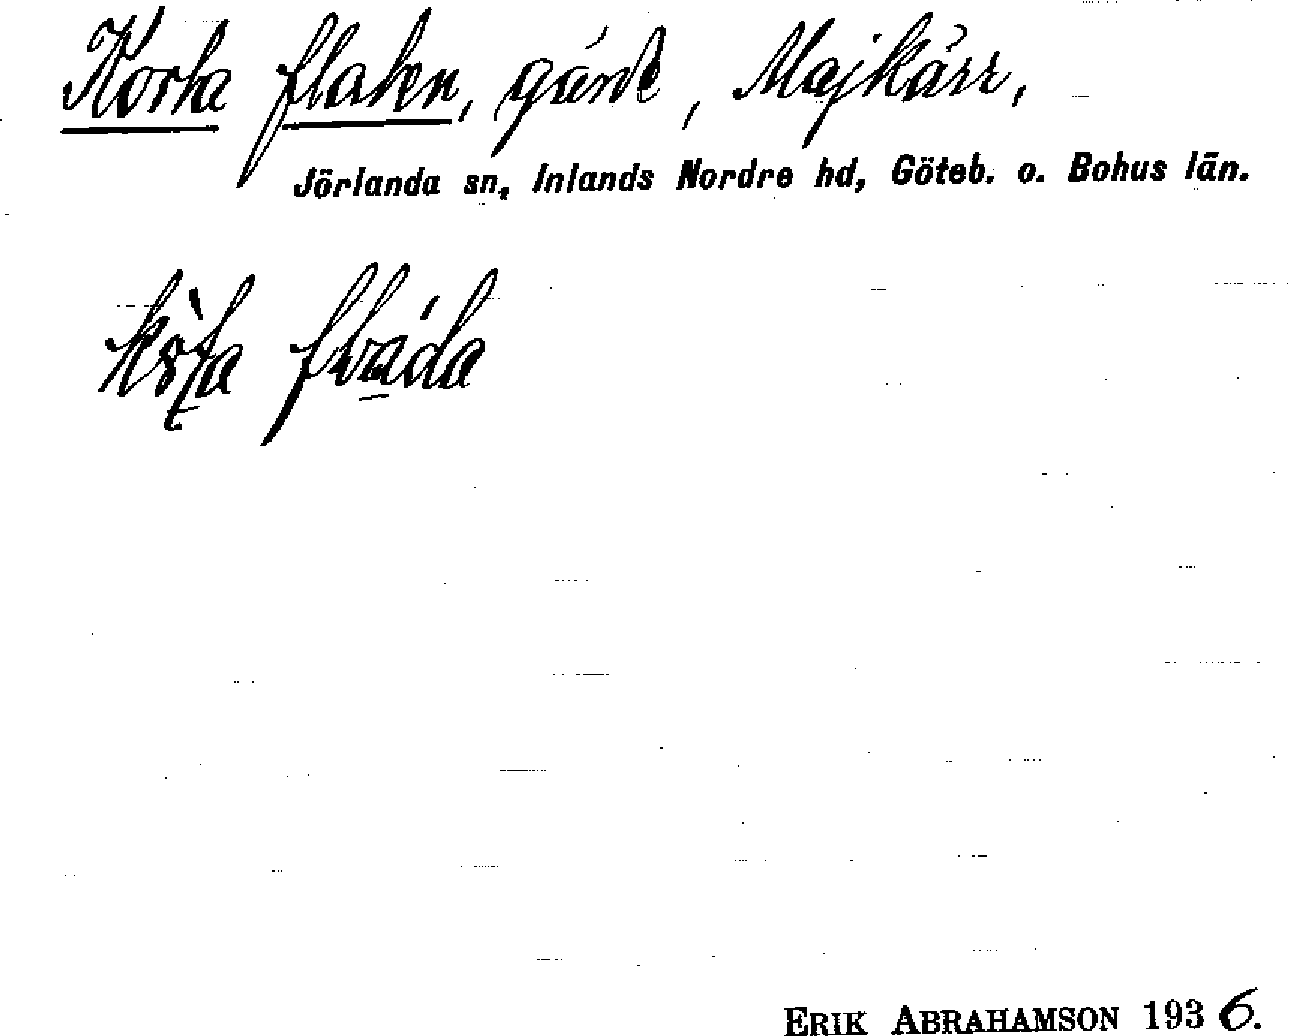 Korta flaten, gärde, Majkärr,
Jörlanda sn, Inlands Nordre hd, Göteb. o. Bohus län.
ERIK ABRAHAMSON 1936.